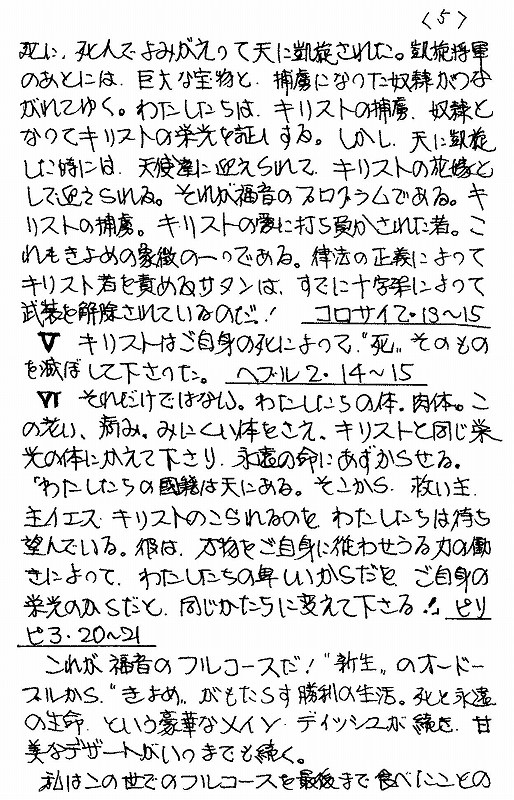 〈5〉
死に、死んでよみがえって天に凱旋された。凱旋将軍
のあとには、巨大な宝物と、捕虜になった奴隷がつな
がれてゆく。わたしたちは、キリストの捕虜、奴隷と
なってキリストの栄光を証しする。しかし、天に凱旋
した時には、天使達に迎えられて、キリストの花嫁と
して迎えられる。それが福音のプログラムである。キ
リストの捕虜。キリストの愛に打ち負かされた者。こ
れもきよめの象徴の一つである。律法の正義によって
キリスト者を責めるサタンは、すでに十字架によって
武装を解除されているのだ! コロサイ2・13〜15
Ⅴ キリストはご自身の死によって、"死"そのもの
を滅ぼして下さった。 ヘブル2・14〜15
Ⅵ それだけではない。わたしたちの体。肉体。こ
の老い、病み、みにくい体をさえ、キリストと同じ栄
光の体にかえて下さり、永遠の命にあずからせる。
「わたしたちの国籍は天にある。そこから、救い主、
主イエス・キリストのこられるのを、わたしたちは待ち
望んでいる。彼は、万物をご自身に従わせうる力の働
きによって、わたしたちの卑しいからだを、ご自身の
栄光のからだと、同じかたちに変えて下さる!」ピリ
ピ3・20〜21
これが福音のフルコースだ!"新生"のオードー
ブルから、"きよめ"がもたらす勝利の生活。死と永遠
の生命、という豪華なメイン・ディッシュが続き、甘
美なデザートがいつまでも続く。
私はこの世でのフルコースを最後まで食べたことの